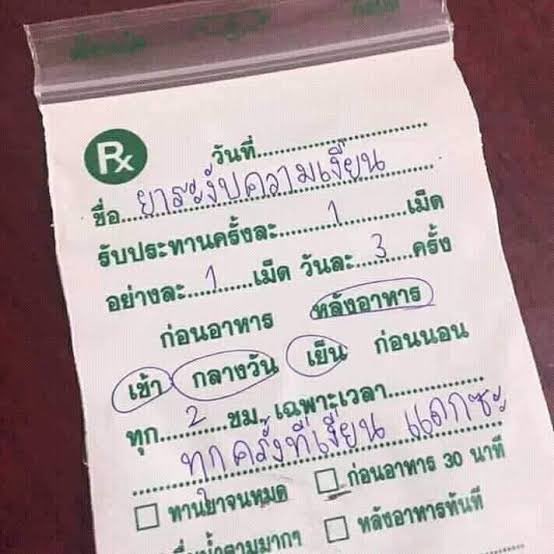 Rx
วันที่
ชื่อ ยาระงับความเงี่ยน
รับประทานครั้งละ 1 เม็ด
อย่างละ 1 เม็ด วันละ 3 ครั้ง
ก่อนอาหาร หลังอาหาร
เช้า กลางวัน เย็น ก่อนนอน
ทุก 2 ชม. เฉพาะเวลา
ทุกครั้งที่เงี่ยน แดกซะ
ทานยาจนหมด ก่อนอาหาร 30 นาที
น้ำตามมากๆ หลังอาหารทันที